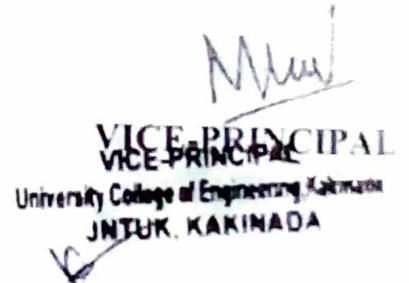 VICE-PRINCIPAL
VICE-PRINCIPAL
University College of Engineering Kakinada
JNTUK, KAKINADA